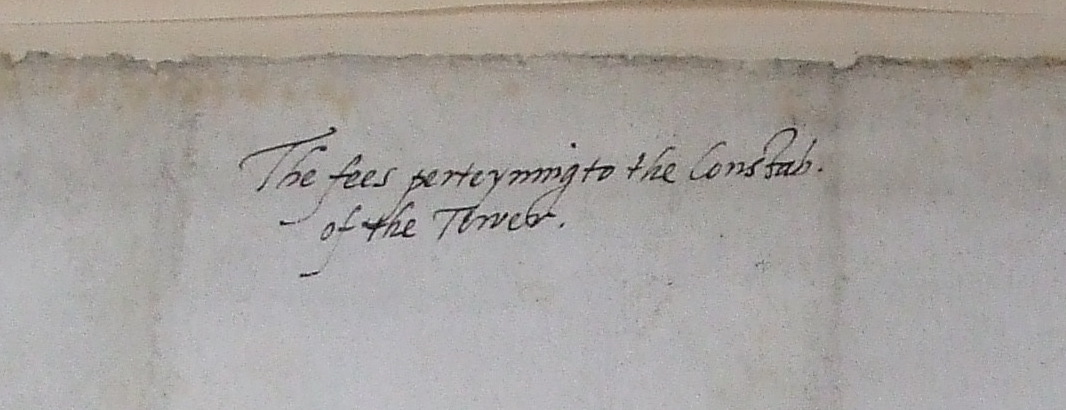 The fees perteyning to the Constab.
of the Tower.